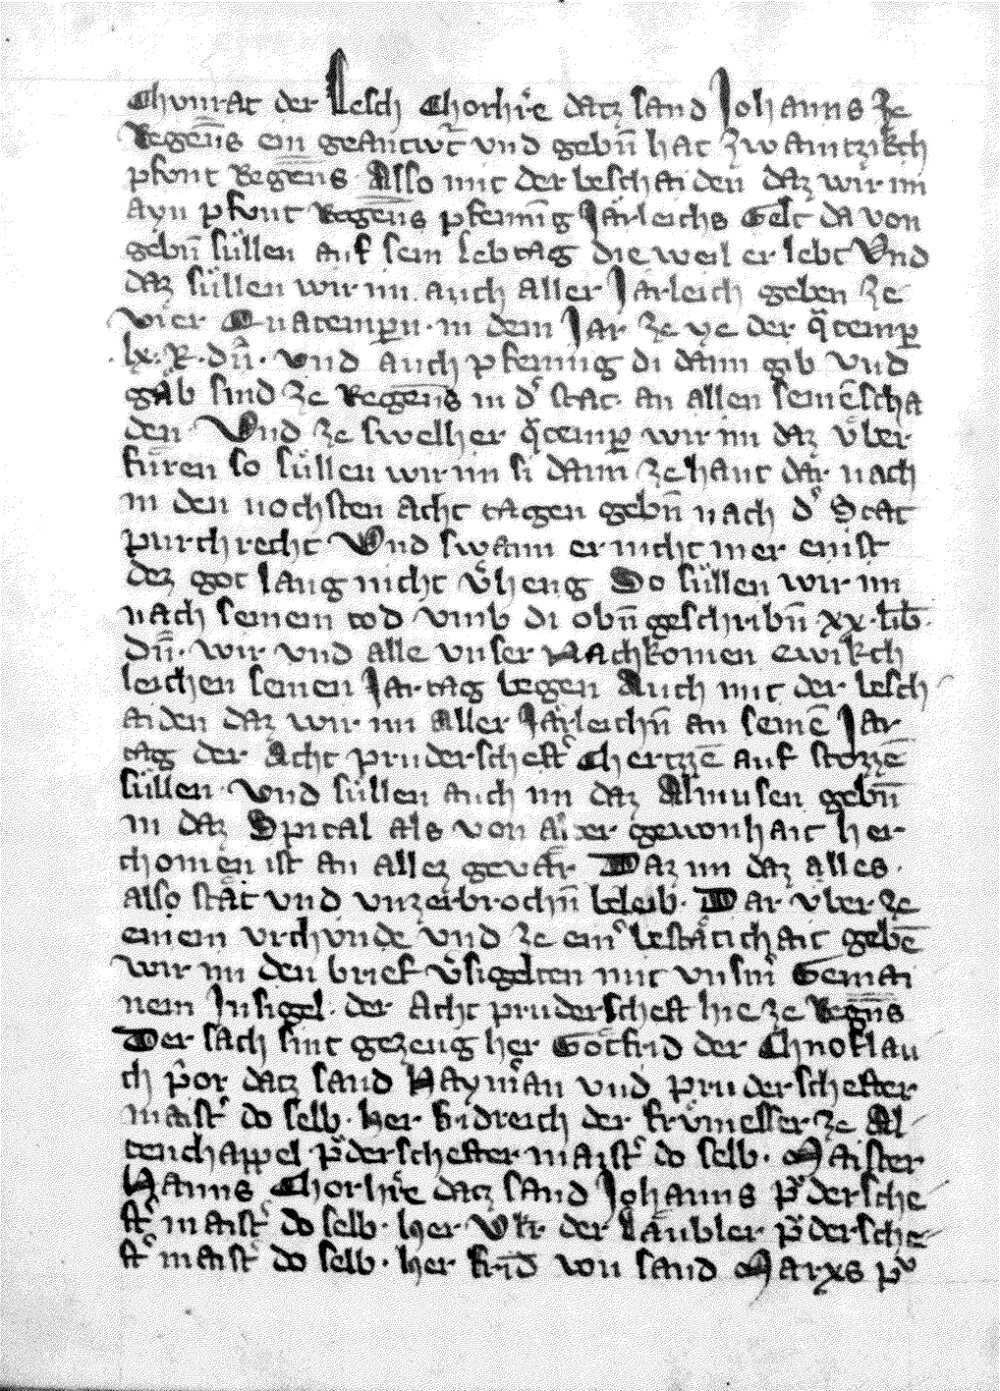 Chunrat der Lesch Chorhͤre datz sand Johanns ze
Regens̄ ein geantwt̄ vnd gebn̄ hat zwaintzikch
pfvnt Regens̄ Also mit der beschaiden daz wir im
ayn pfvnt Regens̄ pfenniḡ Järleichs Gelt da von
gebn̄ süllen auf sein Lebtag die weil er lebt Vnd
daz süllen wir im auch aller Järleich geben ze
vier Quatempn̄ in dem Jar ze ye der q̄temp̄
lx. R. dn̄. vnd auch pfenning di dann gib vnd
gäb sind ze Regens̄ in d͛ stat an allen seinē scha
den Vnd ze swelher q̄temp̄ wir im daz vͤber
furen so süllen wir im si dann ze hant dar nach
in den nochsten acht tagen gebn̄ nach d͛ Stat
purchrecht Vnd swann er nicht mer enist
dez got lang nicht v͛heng So süllen wir im
nach seinem tod vmb di obn̄ geschribn̄ xx. lib̄.
dn̄. wir vnd alle vnser Nachkomen ewikch
leichen seinen Jartag begen Auch mit der besch
aiden daz wir im aller Järleichn̄ an seinē Jar
tag der Acht pruderscheft͛ Chertzzē auf stozzē
süllen. Vnd süllen auch im daz Almusen gebn̄
in daz Spital als von alter gewonhait her
chomen ist an allez gevär Daz im daz alles.
also stät vnd vnzerbrochn̄ beleib. Dar vber ze
einem vrchunde vnd ze ein͛ bestätichait gebē
wir im den brief v͛sigelten mit vnsm̄ Gemai
nem Insigel. der Acht pruderscheft hie ze Regn̄s
Der sach sint gezeug her Götfrid der Chnoflau
ch p͛or datz sand Haym̄an vnd pruderschefter
maist͛ do selb. her Fridreich der frümesser ze Al
tenchappel p͛derschefter maist͛ do selb. Maister
Hanns Chorhͤre datz sand Johanns p͛dersche
ft͛ maist͛ do selb. her Vlr̄ der Läubler p͛dersche
ft͛ maist͛ do selb. her frid̄ von sand Marxs p͛